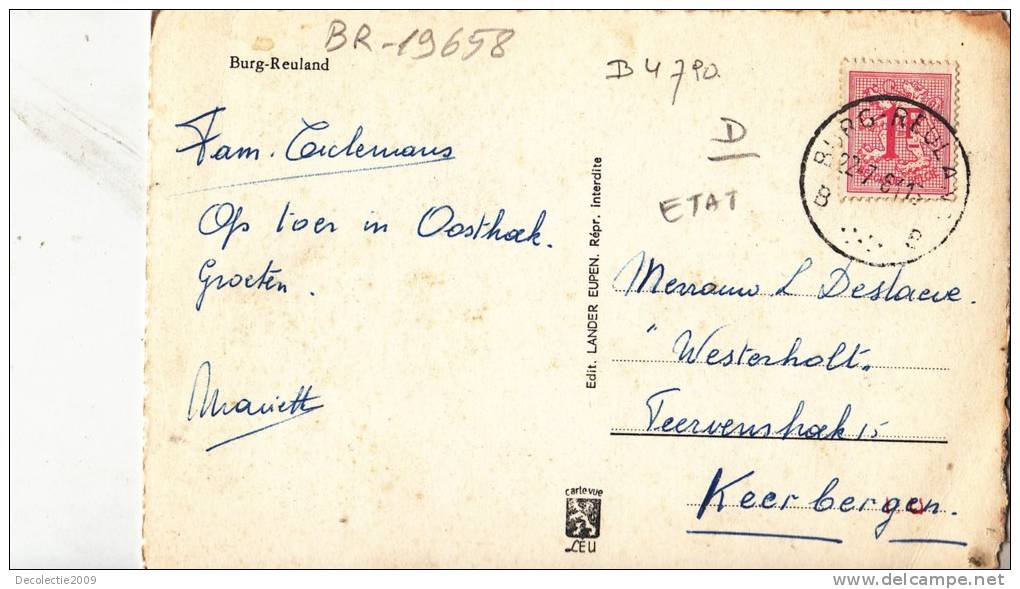 BR-19658
Burg-Reuland
B 4790.
D
ETAT
1F
BURG-REULAND
22-7-6
B B
Fam.
Op toer in Oosthoek.
Groeten.
Mariett
Edit. LANDER EUPEN. Répr. interdite
Mevrouw L Deslaeve.
"Westerholt"
Teervenshoek 15
Keerbergen.
carte vue
LEU
Decolectie2009
www.delcampe.net